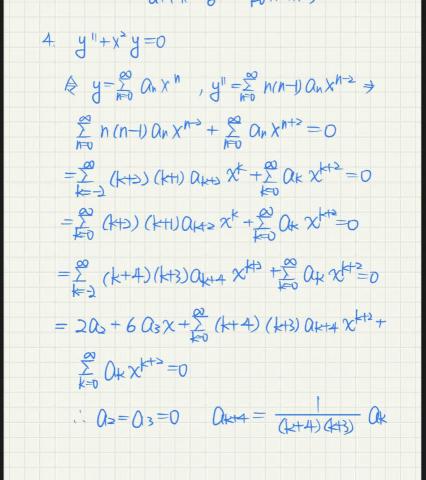 4. y''+x²y=0
令 y=∑_{n=0}^{∞} aₙxⁿ , y''=∑_{n=0}^{∞} n(n-1)aₙx^{n-2} →
∑_{n=0}^{∞} n(n-1)aₙx^{n-2} + ∑_{n=0}^{∞} aₙx^{n+2} =0
=∑_{k=-2}^{∞} (k+2)(k+1)a_{k+2}x^{k} + ∑_{k=0}^{∞} a_k x^{k+2} =0
=∑_{k=0}^{∞} (k+2)(k+1)a_{k+2}x^{k} + ∑_{k=0}^{∞} a_k x^{k+2} =0
=∑_{k=-2}^{∞} (k+4)(k+3)a_{k+4}x^{k+2} + ∑_{k=0}^{∞} a_k x^{k+2} =0
= 2a₂+6a₃x+∑_{k=0}^{∞} (k+4)(k+3)a_{k+4}x^{k+2} +
∑_{k=0}^{∞} a_k x^{k+2} =0
∴ a₂=a₃=0 a_{k+4} = \frac{1}{(k+4)(k+3)} a_k